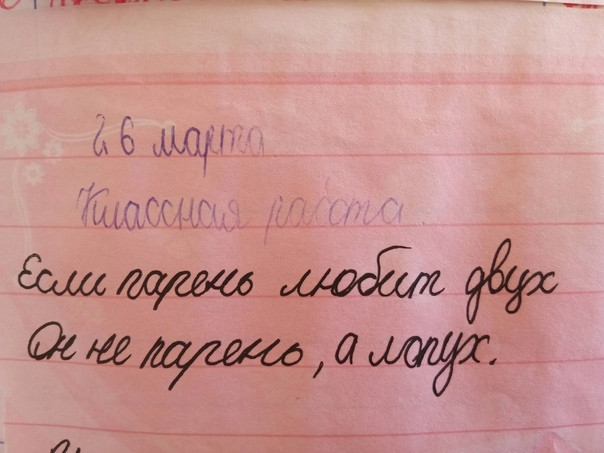 26 марта
Классная работа.
Если парень любит двух
Он не парень, а лопух.